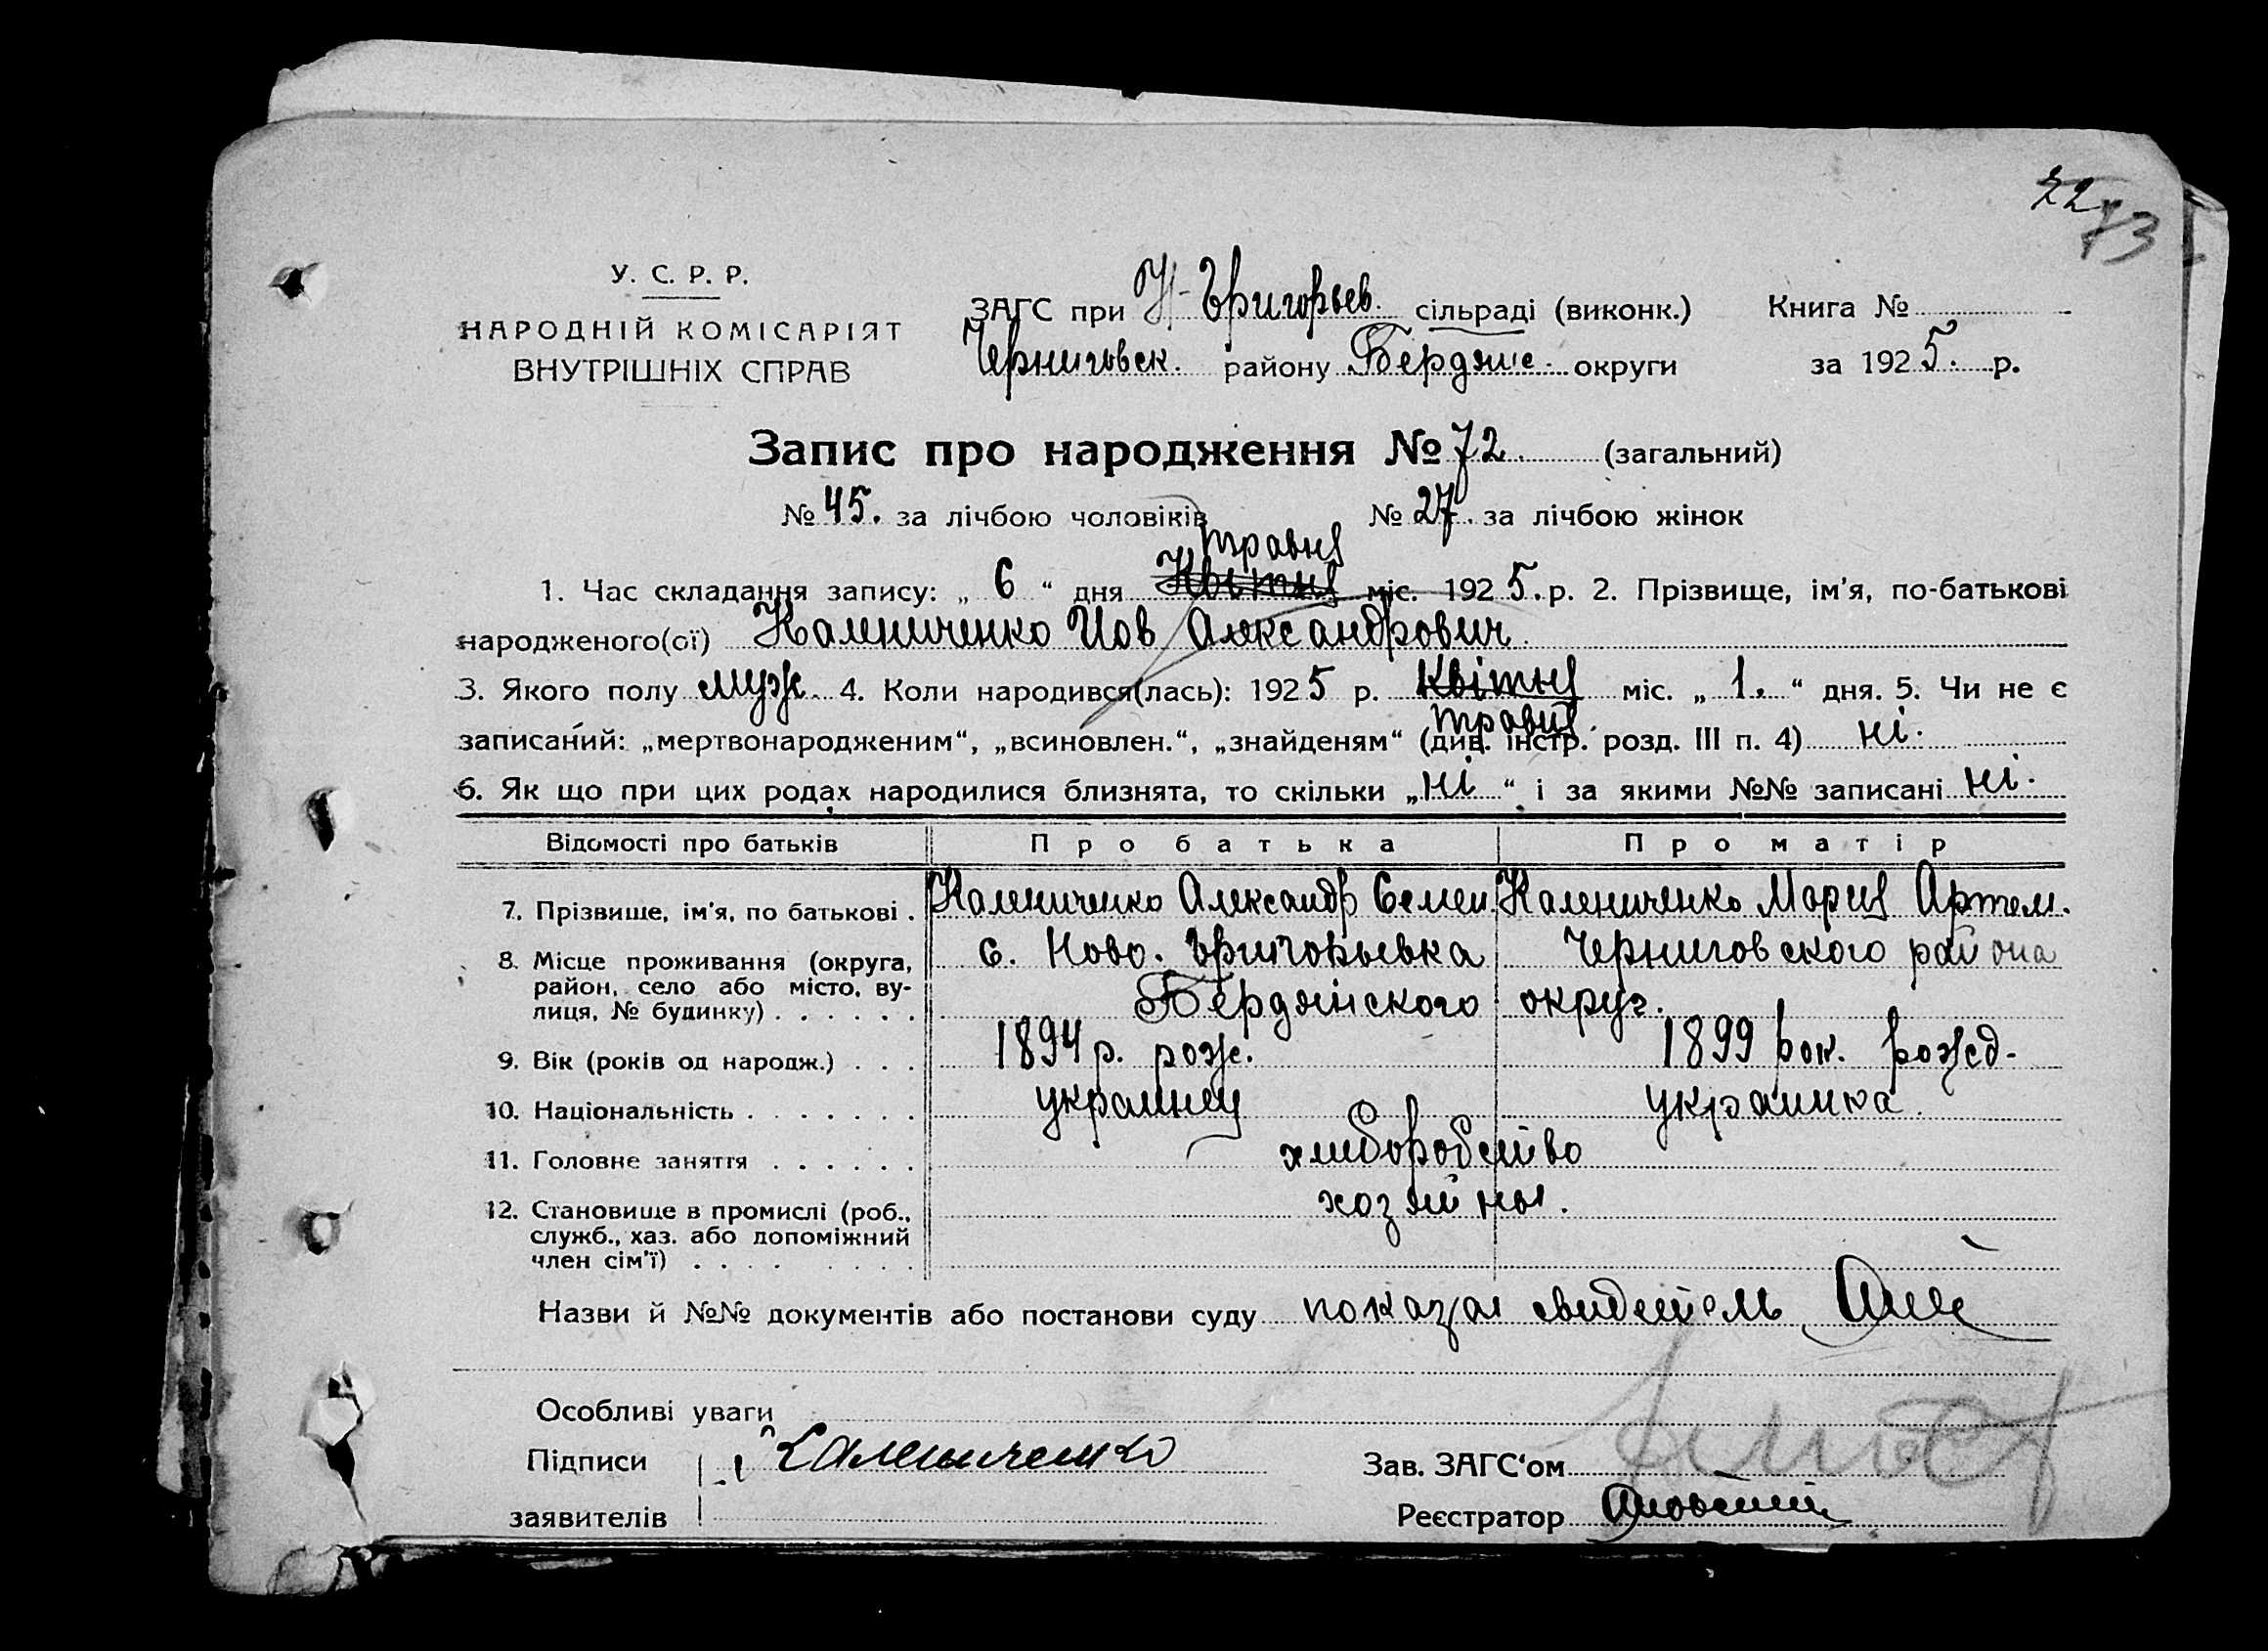 72 73
У. С. Р. Р.
НАРОДНІЙ КОМІСАРІЯТ
ВНУТРІШНІХ СПРАВ
ЗАГС при Н-Григорьев. сільраді (виконк.) Книга №
Черниговск. району Бердянс. округи за 1925. р.
Запис про народження № 72. (загальний)
№ 45. за лічбою чоловіків № 27. за лічбою жінок
травня
1. Час складання запису: „ 6 “ дня Квітня міс. 1925. р. 2. Прізвище, ім'я, по-батькові
народженого(ої) Калениченко Иов Александрович
3. Якого полу муж. 4. Коли народився(лась): 1925 р. Квітня міс. „ 1. “ дня. 5. Чи не є
травня.
записаний: „мертвонародженим“, „всиновлен.“, „знайденям“ (див. інстр. розд. III п. 4) ні.
6. Як що при цих родах народилися близнята, то скільки „ні“ і за якими №№ записані ні.
Відомості про батьків Про батька Про матір
7. Прізвище, ім'я, по батькові . Калениченко Александр Семен. Калениченко Мария Артем.
8. Місце проживання (округа, район, село або місто, вулиця, № будинку) . . . . . . с. Ново. Григорьевка Черниговского района
Бердянского округ.
9. Вік (років од народж.) . . . 1894 р. рож. 1899 рок. рожд-
10. Національність . . . . . . . украинец украинка
11. Головне заняття . . . . . . хлиборобство
12. Становище в промислі (роб., служб., хаз. або допоміжний член сім'ї) . . . . . . . . хозяйны.
Назви й №№ документів або постанови суду показал свидетель
Особливі уваги
Підписи Калениченко Зав. ЗАГС'ом
заявителів Реєстратор